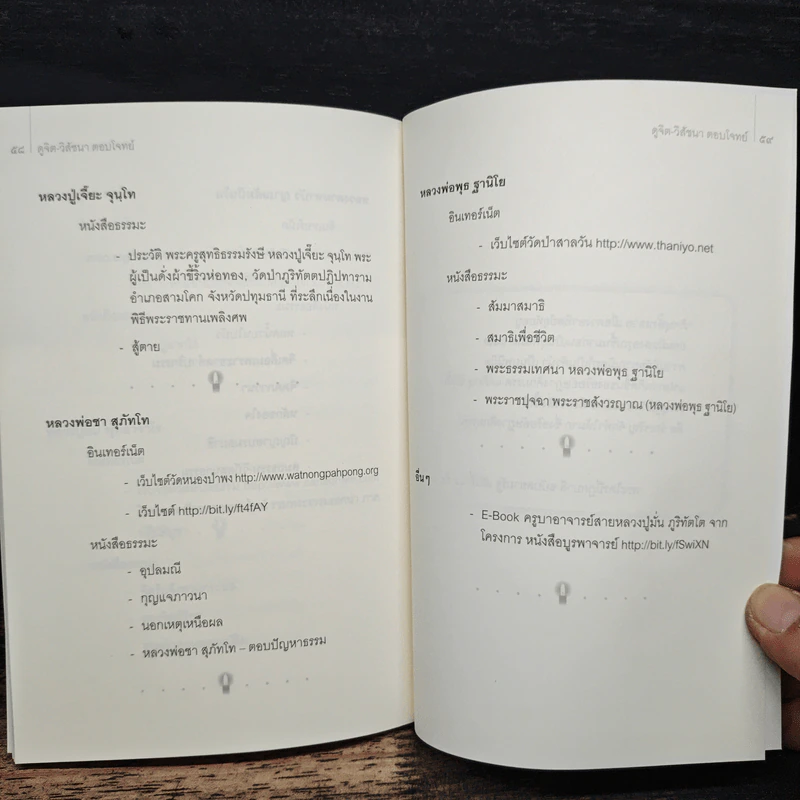 ๕๘ ดูจิต-วิสัชนา ตอบโจทย์
หลวงปู่เจี๊ยะ จุนฺโท
หนังสือธรรมะ
- ประวัติ พระครูสุทธิธรรมรังษี หลวงปู่เจี๊ยะ จุนฺโท พระ
ผู้เป็นดั่งผ้าขี้ริ้วห่อทอง, วัดป่าภูริทัตตปฏิปทาราม
อำเภอสามโคก จังหวัดปทุมธานี ที่ระลึกเนื่องในงาน
พิธีพระราชทานเพลิงศพ
- สู้ตาย
หลวงพ่อชา สุภัทโท
อินเทอร์เน็ต
- เว็บไซต์วัดหนองป่าพง http://www.watnongpahpong.org
- เว็บไซต์ http://bit.ly/ft4fAY
หนังสือธรรมะ
- อุปลมณี
- กุญแจภาวนา
- นอกเหตุเหนือผล
- หลวงพ่อชา สุภัทโท – ตอบปัญหาธรรม
ดูจิต-วิสัชนา ตอบโจทย์ ๕๙
หลวงพ่อพุธ ฐานิโย
อินเทอร์เน็ต
- เว็บไซต์วัดป่าสาลวัน http://www.thaniyo.net
หนังสือธรรมะ
- สัมมาสมาธิ
- สมาธิเพื่อชีวิต
- พระธรรมเทศนา หลวงพ่อพุธ ฐานิโย
- พระราชปุจฉา พระราชสังวรญาณ (หลวงพ่อพุธ ฐานิโย)
อื่นๆ
- E-Book ครูบาอาจารย์สายหลวงปู่มั่น ภูริทัตโต จาก
โครงการ หนังสือบูรพาจารย์ http://bit.ly/fSwiXN